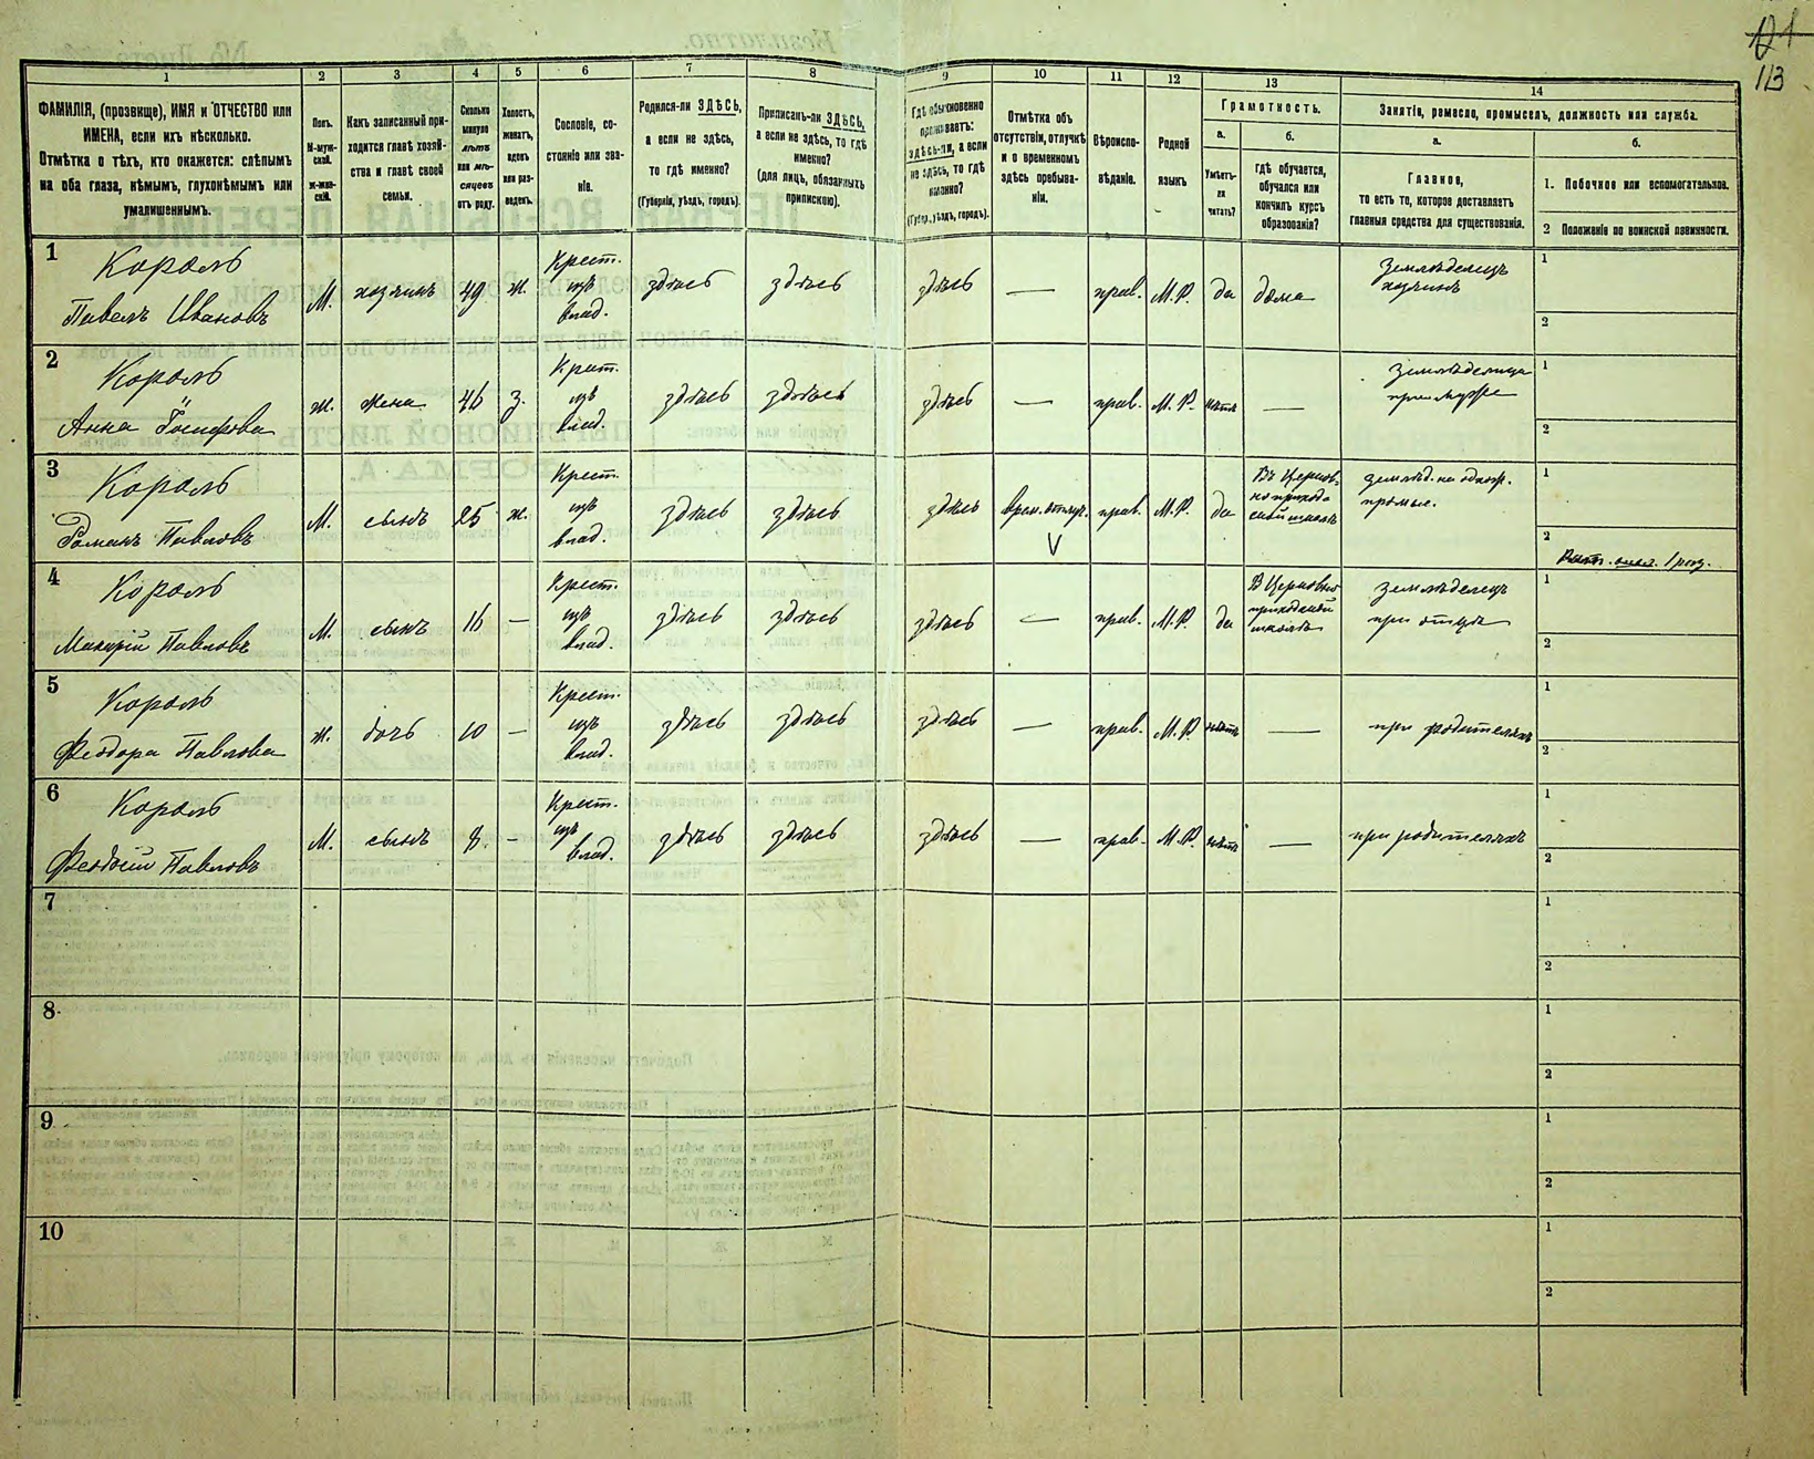 121
113
1 2 3 4 5 6 7 8 9 10 11 12 13 14
ФАМИЛІЯ, (прозвище), ИМЯ и ОТЧЕСТВО или
ИМЕНА, если ихъ нѣсколько.
Отмѣтка о тѣхъ, кто окажется: слѣпымъ
на оба глаза, нѣмымъ, глухонѣмымъ или
умалишеннымъ.
Полъ.
М-муж-
ской.
ж-жен-
скій.
Какъ записанный при-
ходится главѣ хозяй-
ства и главѣ своей
семьи.
Сколько
минуло
лѣтъ
или мѣ-
сяцевъ
отъ роду.
Холостъ,
женатъ,
вдовъ
или раз-
веденъ.
Сословіе, со-
стояніе или зва-
ніе.
Родился-ли ЗДѢСЬ,
а если не здѣсь,
то гдѣ именно?
(Губернія, уѣздъ, городъ).
Приписанъ-ли ЗДѢСЬ,
а если не здѣсь, то гдѣ
именно?
(для лицъ, обязанныхъ
припискою).
Гдѣ обыкновенно
проживаетъ:
здѣсь-ли, а если
не здѣсь, то гдѣ
именно?
(Губер., уѣздъ, городъ).
Отмѣтка объ
отсутствіи, отлучкѣ
и о временномъ
здѣсь пребыва-
ніи.
Вѣроиспо-
вѣданіе.
Родной
языкъ
Грамотность.
а.
Умѣетъ-
ли
читать?
б.
Гдѣ обучается,
обучался или
кончилъ курсъ
образованія?
Занятіе, ремесло, промыселъ, должность или служба.
а.
Главное,
то есть то, которое доставляетъ
главныя средства для существованія.
б.
1. Побочное или вспомогательное.
2 Положеніе по воинской повинности.
1
Король
Павелъ Ивановъ
М.
хозяинъ
49
ж.
Крест.
изъ
влад.
здѣсь
здѣсь
здѣсь
—
прав.
М.Р.
да
дома
Земледѣлецъ
хозяинъ
1
2
2
Король
Анна Іосифова
ж.
жена
46
з.
Крест.
изъ
влад.
здѣсь
здѣсь
здѣсь
—
прав.
М.Р.
нѣтъ
—
Земледѣлица
при мужѣ
1
2
3
Король
Романъ Павловъ
М.
сынъ
25
ж.
Крест.
изъ
влад.
здѣсь
здѣсь
здѣсь
врем. отлуч.
V
прав.
М.Р.
да
Въ Церков-
но приход-
ской школѣ
1
2
4
Король
Макарій Павловъ
М.
сынъ
16
—
Крест.
изъ
влад.
здѣсь
здѣсь
здѣсь
—
прав.
М.Р.
да
В Церковно
приходской
школѣ
Земледѣлецъ
при отцѣ
1
2
5
Король
Феодора Павлова
ж.
дочь
10
—
Крест.
изъ
влад.
здѣсь
здѣсь
здѣсь
—
прав.
М.Р.
нѣтъ
—
при родителяхъ
1
2
6
Король
Феодосій Павловъ
М.
сынъ
8.
—
Крест.
изъ
влад.
здѣсь
здѣсь
здѣсь
—
прав.
М.Р.
нѣтъ
—
при родителяхъ
1
2
7
1
2
8
1
2
9
1
2
10
1
2